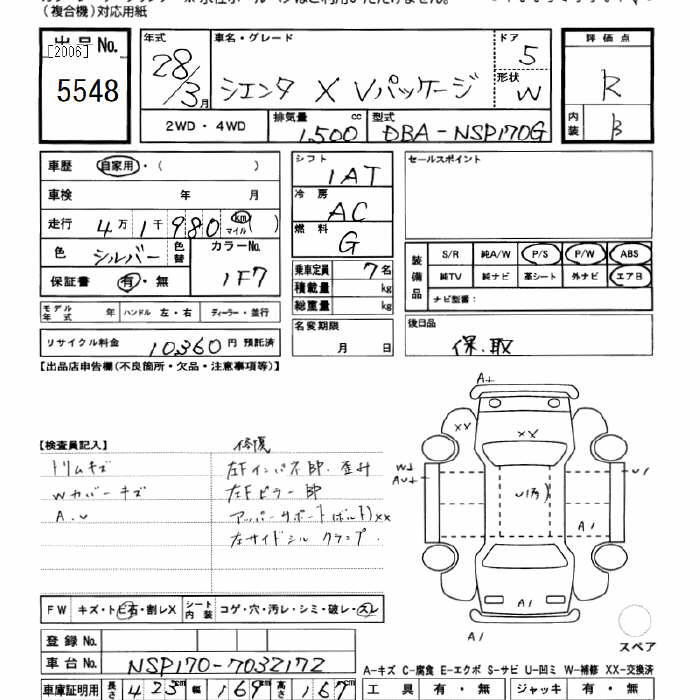 （複合機）対応用紙
出品No.
[2006]
5548
年式 28/3月
車名・グレード シエンタ X Vパッケージ
ドア 5
形状 W
2WD・4WD
排気量 1,500 cc
型式 DBA-NSP170G
評価点 R
内装 B
車歴 自家用・( )
車検 年 月
走行 4万1千980 km マイル( )
色 シルバー 色替
カラーNo. 1F7
保証書 有・無
モデル年式 年 ハンドル 左・右 ディーラー・並行
リサイクル料金 10360円 預託済
シフト 1AT
冷房 AC
燃料 G
乗車定員 7名
積載量 kg
総重量 kg
名変期限 月 日
セールスポイント
装備品 S/R 純A/W P/S P/W ABS
純TV 純ナビ 革シート 外ナビ エアB
ナビ型番：
後日品 保.取
【出品店申告欄(不良箇所・欠品・注意事項等)】
【検査員記入】
修復
トリムキズ
左Fインパネ部.歪み
Wカバーキズ
左Fピラー部
A.U
アッパーサポート(ボルト)XX
左サイドシル クランプ.
A+
XX
XX
U1
A1
A1
A1
A1
スペア
FW キズ・トビ石・割レX シート内装 コゲ・穴・汚レ・シミ・破レ・スレ
登録No.
車台No. NSP170-7032172
車庫証明用 長さ 423cm 幅 169cm 高さ 167cm
A-キズ C-腐食 E-エクボ S-サビ U-凹ミ W-補修 XX-交換済
工具 有・無 ジャッキ 有・無